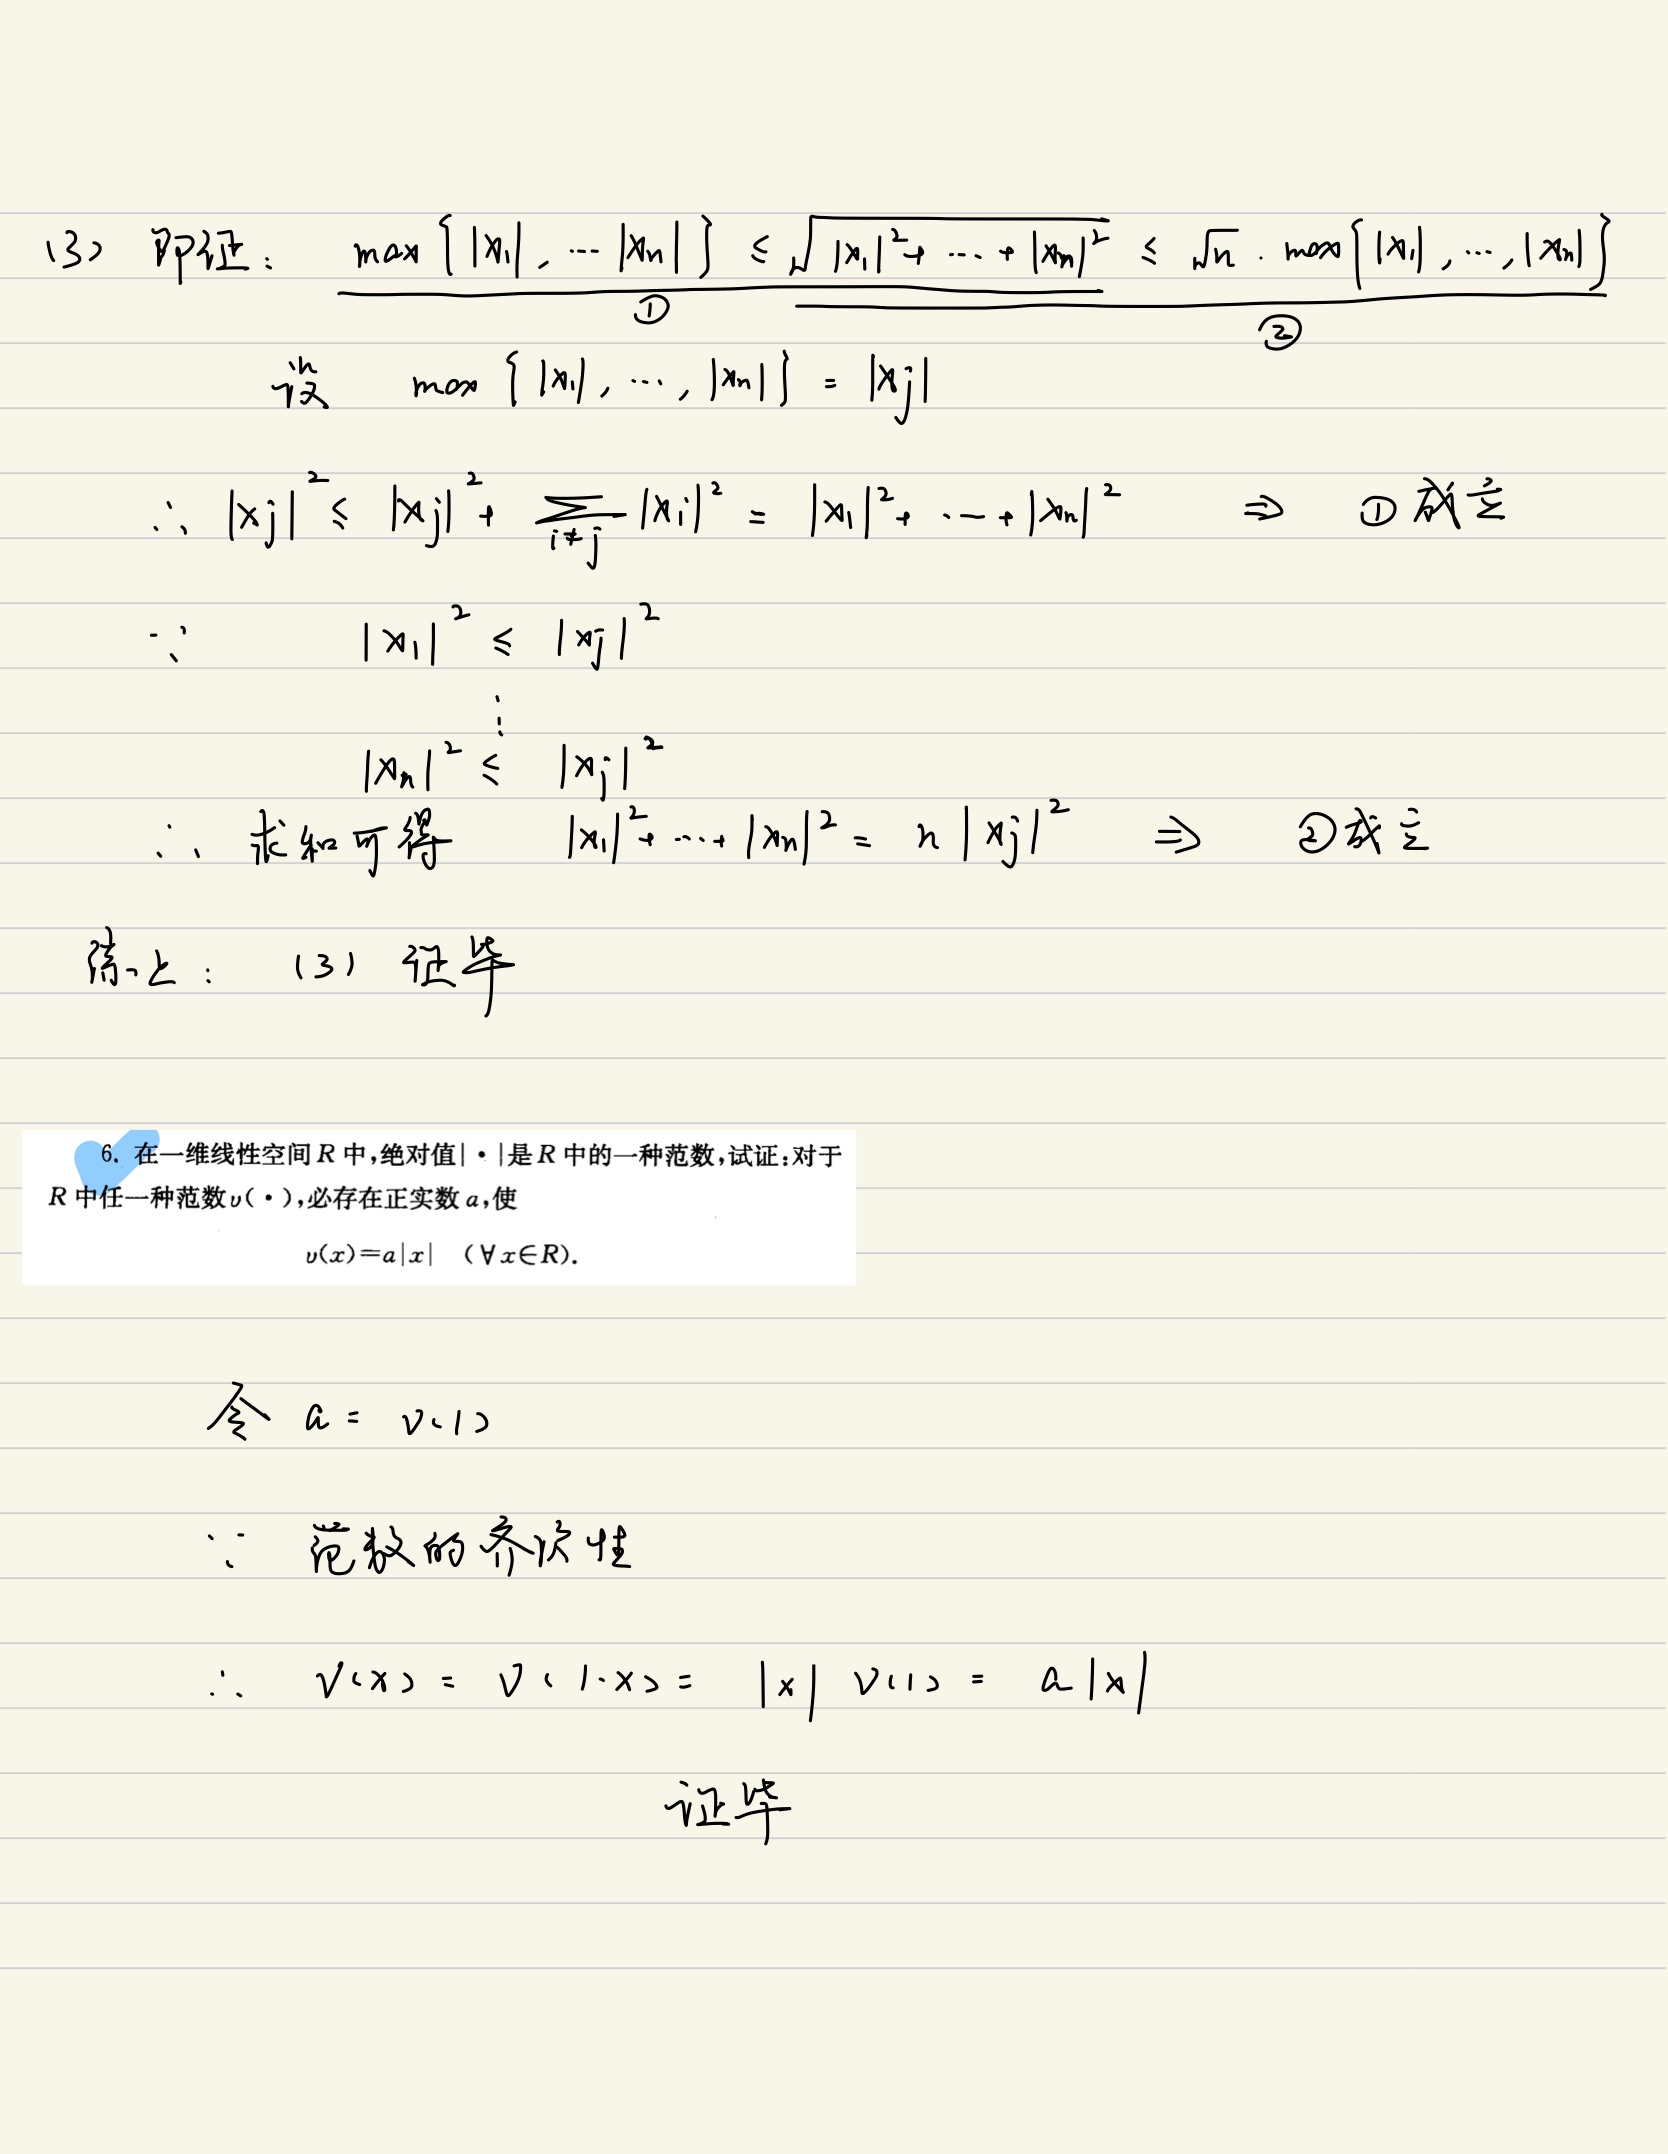 (3) 即证: max{|x₁|, …|xₙ|} ≤ √(|x₁|²+…+|xₙ|²) ≤ √n · max{|x₁|, …, |xₙ|}
① ②
设 max{|x₁|, …, |xₙ|} = |xj|
∴ |xj|² ≤ |xj|² + ∑_{i≠j} |xi|² = |x₁|²+…+|xₙ|² ⇒ ①成立
∵ |x₁|² ≤ |xj|²
⋮
|xₙ|² ≤ |xj|²
∴ 求和可得 |x₁|²+…+|xₙ|² = n|xj|² ⇒ ②成立
综上: (3) 证毕
6. 在一维线性空间 R 中,绝对值|·|是 R 中的一种范数,试证:对于
R 中任一种范数 υ(·),必存在正实数 a,使
υ(x)=a|x| (∀x∈R).
令 a = ν(1)
∵ 范数的齐次性
∴ ν(x) = ν(1·x) = |x| ν(1) = a|x|
证毕